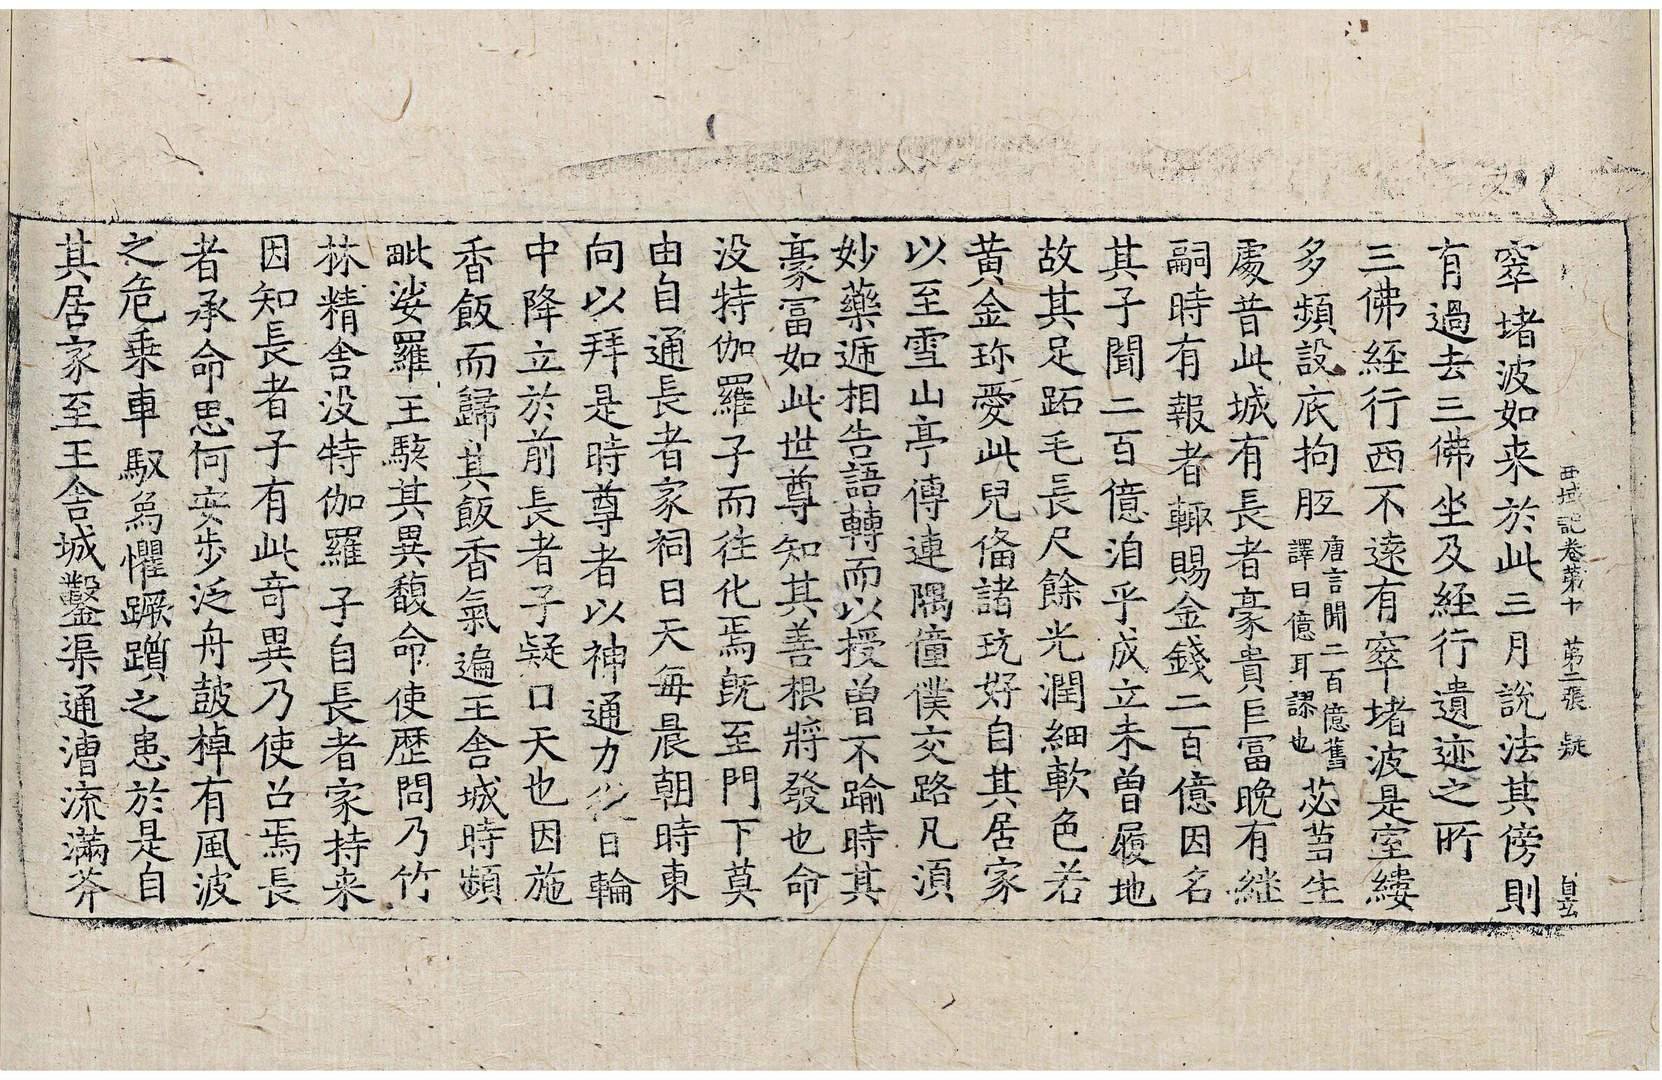 西域記卷第十 第二張 疑
窣堵波如来於此三月說法其傍則
有過去三佛坐及經行遺迹之所
三佛經行西不遠有窣堵波是室縷
多頻設底拘胝唐言聞二百億舊譯曰億耳謬也苾芻生
處昔此城有長者豪貴巨冨晚有継
嗣時有報者輙賜金錢二百億因名
其子聞二百億洎乎成立未曾履地
故其足跖毛長尺餘光潤細軟色若
黃金珎愛此兒俻諸玩好自其居家
以至雪山亭傳連隅僮僕交路凡湏
妙藥逓相告語轉而以授曾不踰時其
豪冨如此世尊知其善根將發也命
没特伽羅子而往化焉旣至門下莫
由自通長者家祠日天每晨朝時東
向以拜是時尊者以神通力從日輪
中降立於前長者子疑日天也因施
香飯而歸其飯香氣遍王舍城時頻
毗娑羅王駭其異馥命使歴問乃竹
林精舍没特伽羅子自長者家持来
因知長者子有此竒異乃使召焉長
者承命思何安步泛舟鼓棹有風波
之危乗車馭爲懼蹶躓之患於是自
其居家至王舍城鑿渠通漕流滿芥